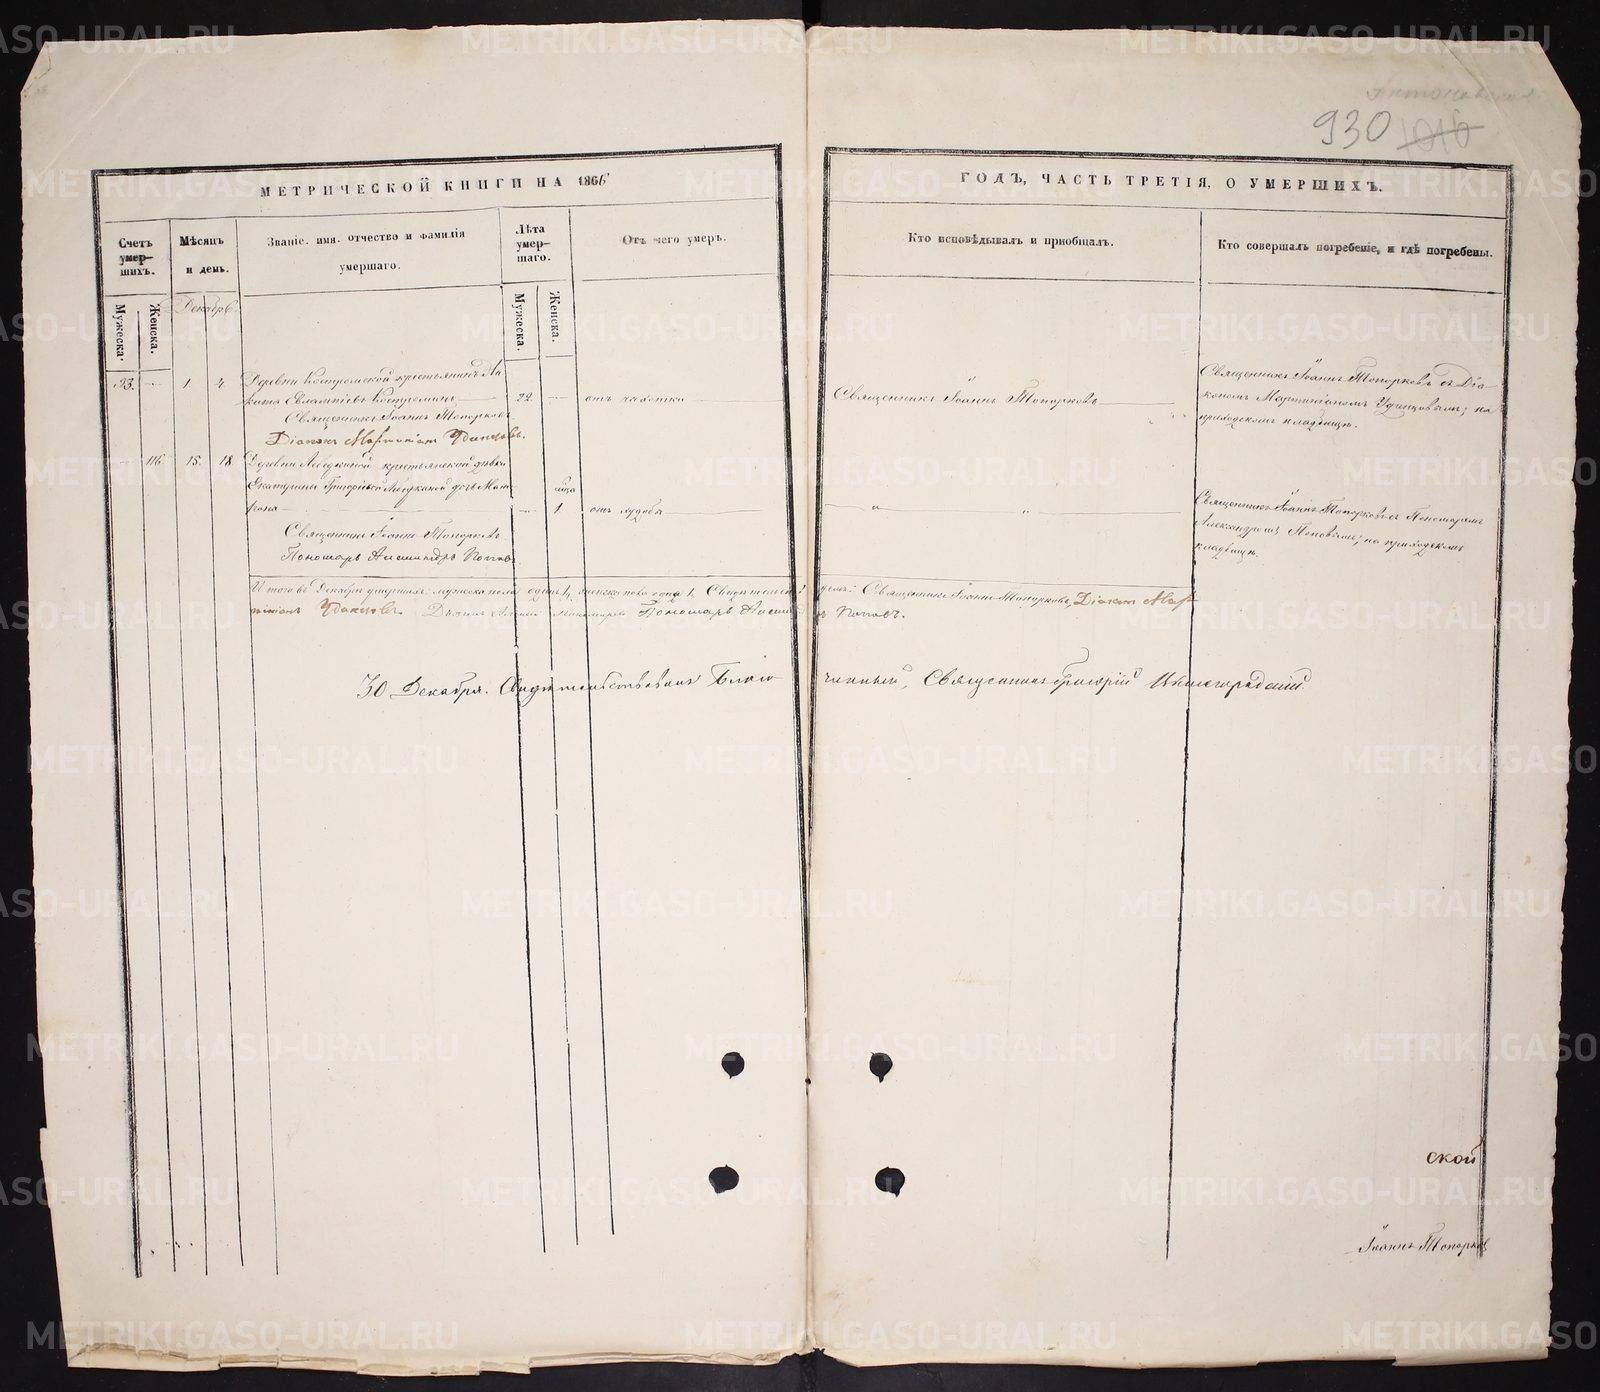 930 1016
МЕТРИЧЕСКОЙ КНИГИ НА 1866
ГОДЪ, ЧАСТЬ ТРЕТІЯ, О УМЕРШИХЪ.
Счетъ умер-шихъ.
Мѣсяцъ и день.
Званіе, имя, отчество и фамилія умершаго.
Лѣта умер-шаго.
Отъ чего умеръ.
Кто исповѣдывалъ и пріобщалъ.
Кто совершалъ погребеніе, и гдѣ погребены.
Мужеска.
Женска.
Декабрь.
Мужеска.
Женска.
23. 1. 4. Деревни Костромской крестьянинъ
Евлампіевъ Костроминъ 22 отъ чахотки Священникъ Іоаннъ Топорковъ
Священникъ Іоаннъ Топорковъ съ Діа-
кономъ Мартиніаномъ Удинцовымъ; на
приходскомъ кладбищѣ.
Священникъ Іоаннъ Топорковъ
Діаконъ Мартиніанъ Удинцовъ.
116. 15. 18. Деревни Лебедкиной крестьянской дѣвки
Екатерины Григорьевой Лебедкиной дочь Мат-
рона 1. отъ худобы
Священникъ Іоаннъ Топорковъ съ Пономаремъ
Александромъ Поповымъ; на приходскомъ
кладбищѣ.
Священникъ Іоаннъ Топорковъ
Пономарь Александръ Поповъ.
Итого въ Декабрѣ умершихъ: мужеска пола одинъ 1, женска пола одна 1. Священникъ Іоаннъ Топорковъ, Діаконъ Мар
тиніанъ Удинцовъ. Пономарь Поповъ.
30 Декабря. Свидѣтельствовалъ Благочинный, Священникъ Григорій
ской
Іоаннъ Топорковъ
METRIKI.GASO-URAL.RU